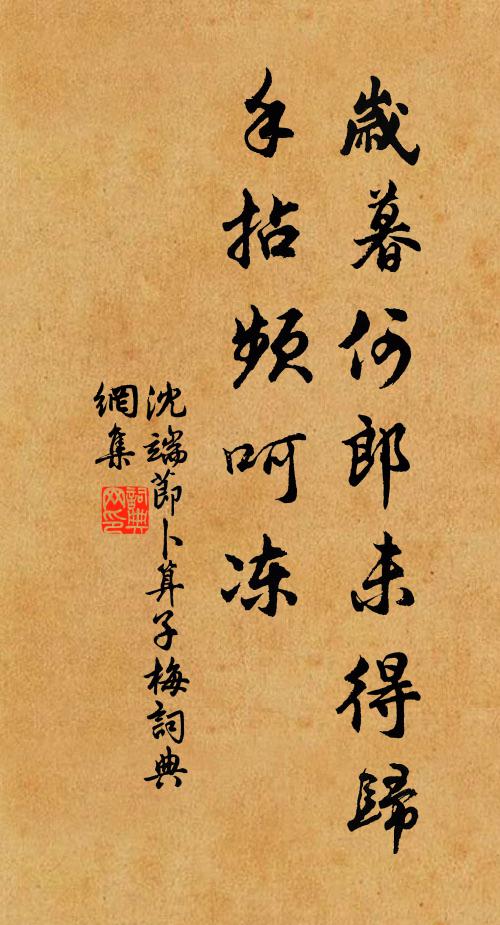 歲暮何郎未得歸
手拈频呵冻
沈端節卜算子梅詞典
網集
詞典
网印